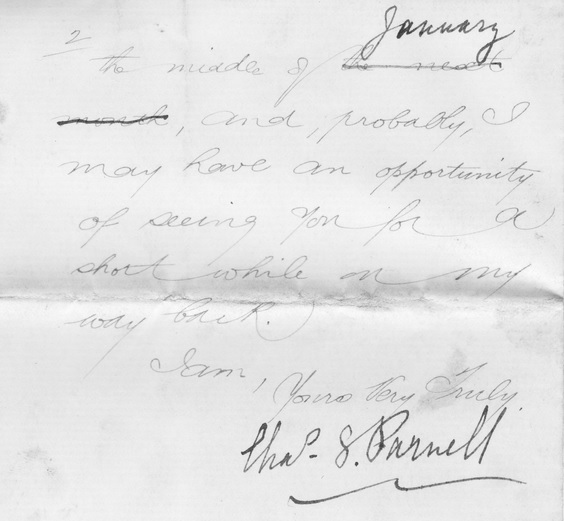 2
January
the middle of the next
month, and, probably, I
may have an opportunity
of seeing you for a
short while on my
way back.
I am,
Yours Very Truly
Chas. S. Parnell